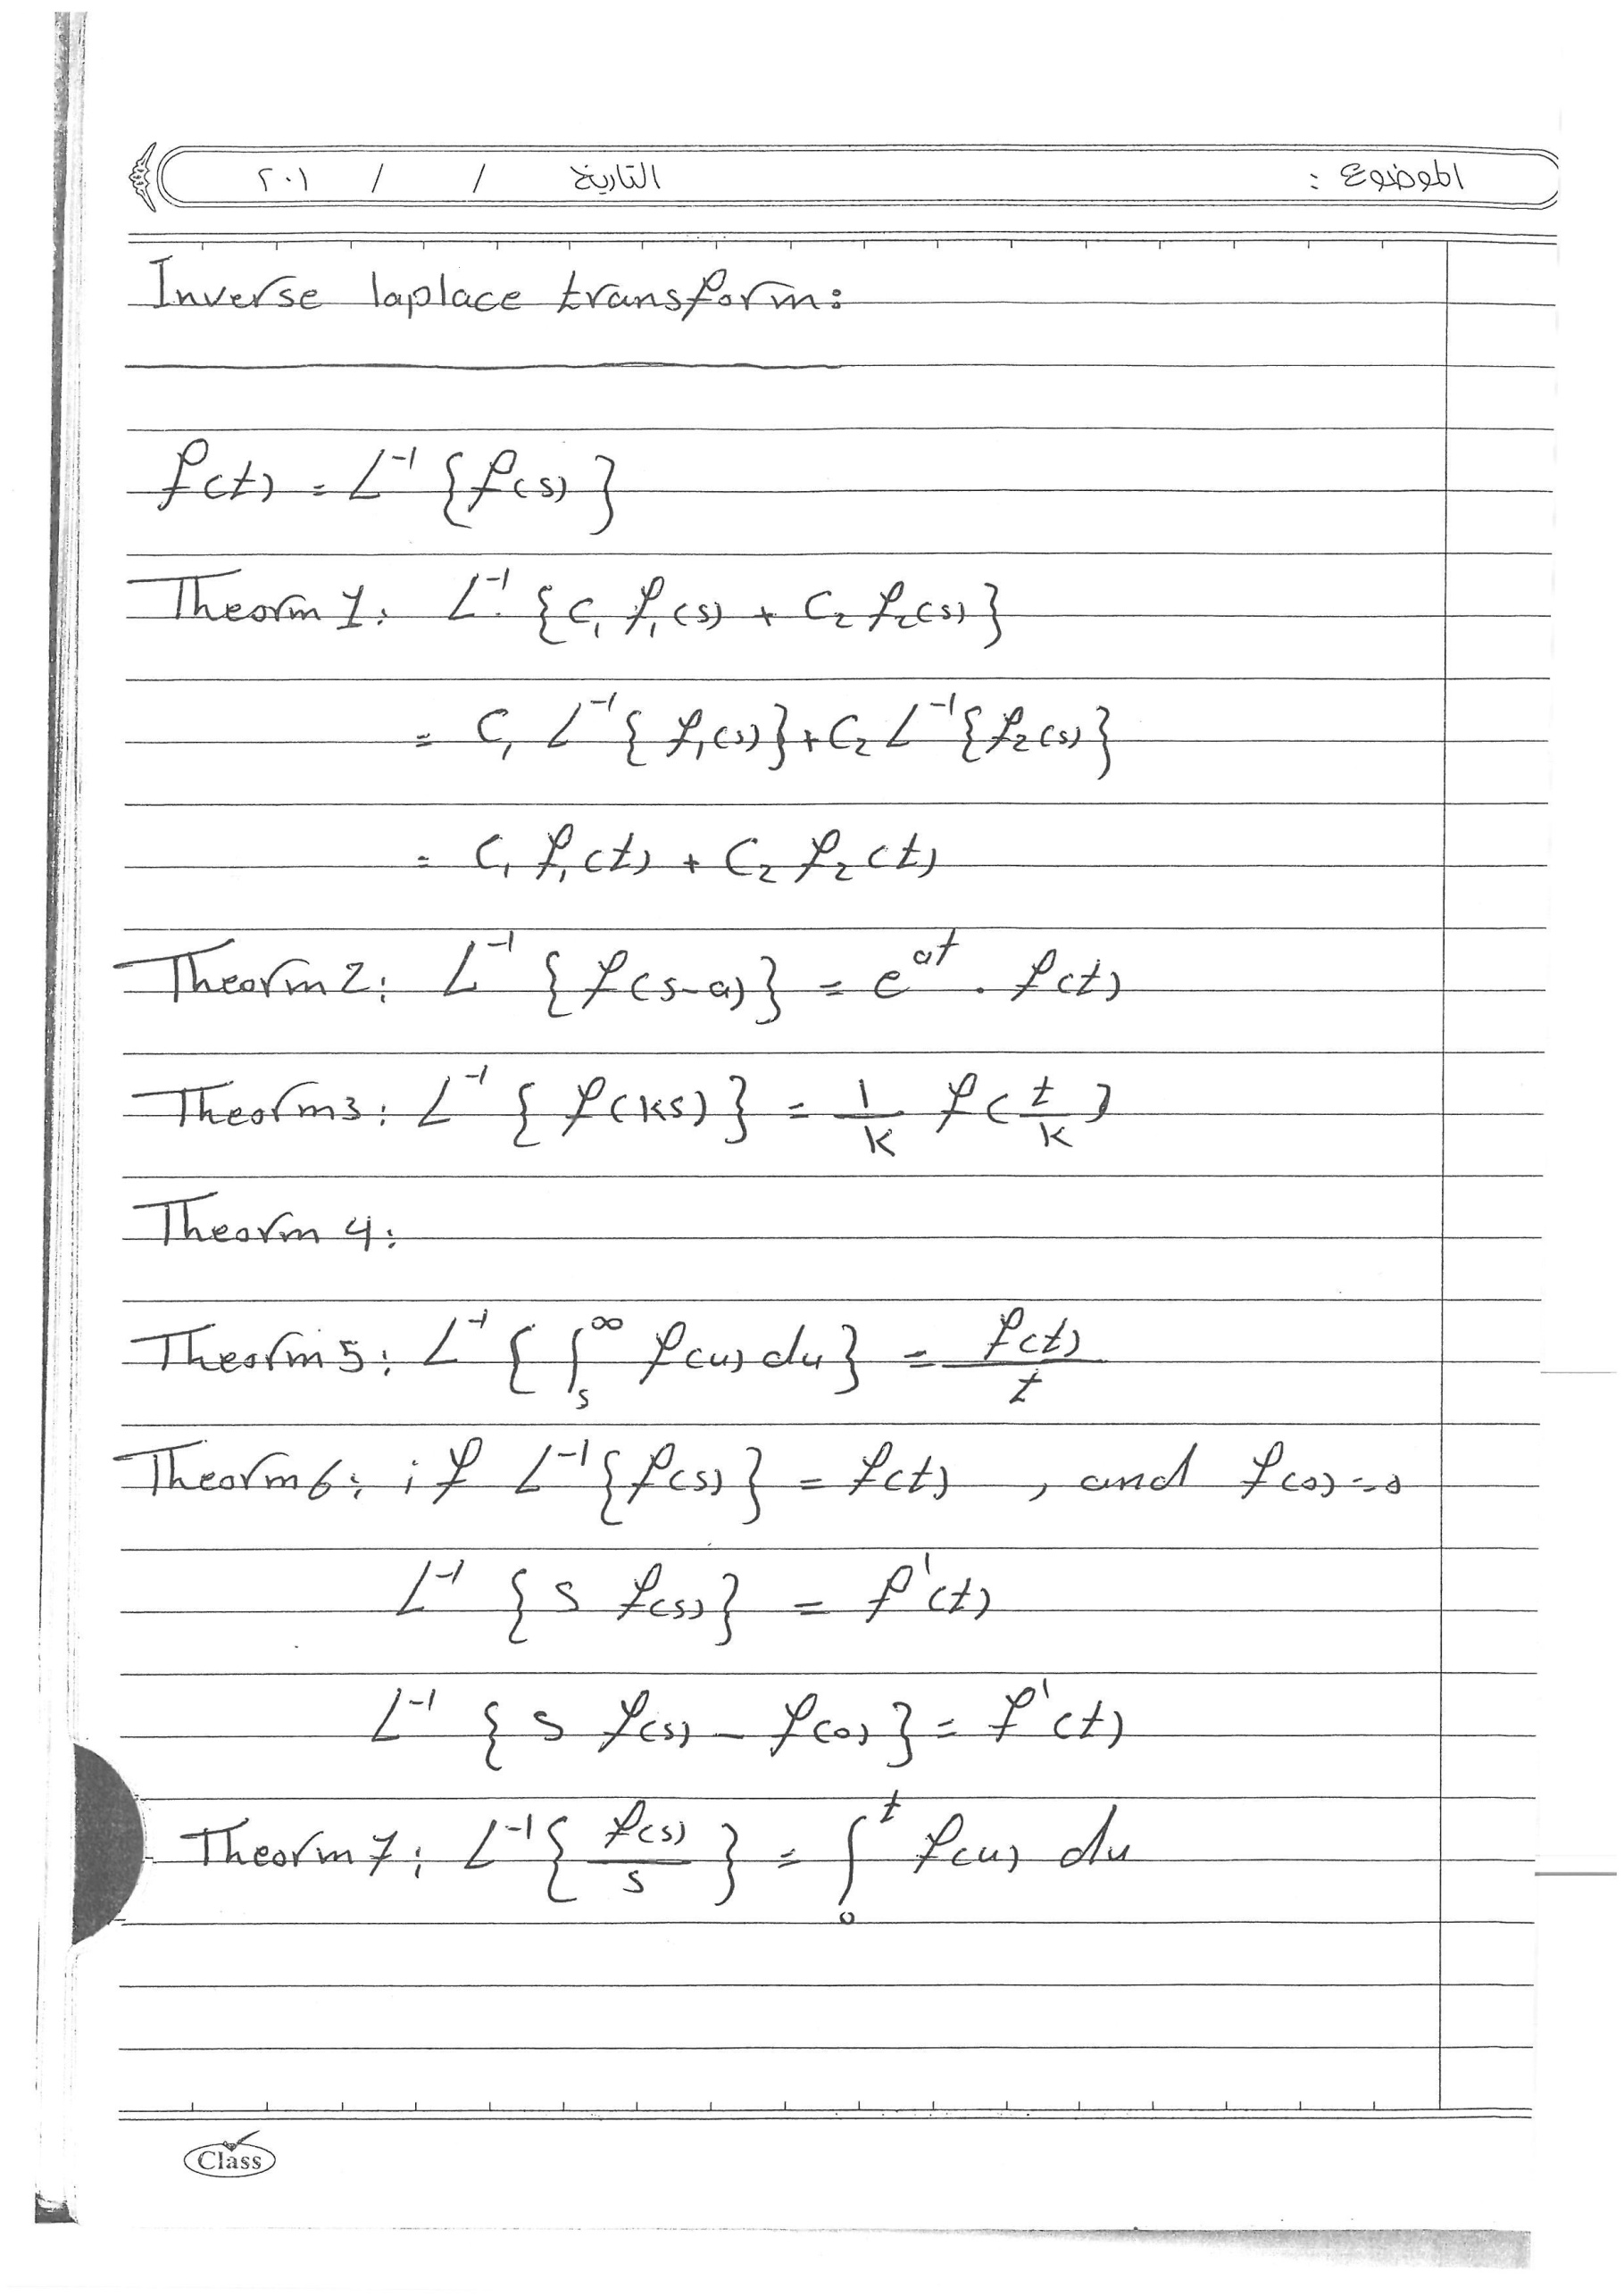 الموضوع : التاريخ / / ٢٠١
Inverse laplace transform:
f(t) = L⁻¹ {f(s)}
Theorm 1: L⁻¹ {c₁ f₁(s) + c₂ f₂(s)}
= c₁ L⁻¹{ f₁(s)} + c₂ L⁻¹{f₂(s)}
= c₁ f₁(t) + c₂ f₂(t)
Theorm 2: L⁻¹ {f(s-a)} = e^at . f(t)
Theorm 3: L⁻¹ { f(ks) } = 1/k f(t/k)
Theorm 4:
Theorm 5: L⁻¹ { ∫_s^∞ f(u) du} = f(t)/t
Theorm 6: if L⁻¹{f(s)} = f(t) , and f(0)=0
L⁻¹ {s f(s)} = f'(t)
L⁻¹ {s f(s) - f(0)} = f'(t)
Theorm 7: L⁻¹{ f(s)/s } = ∫_0^t f(u) du
Class